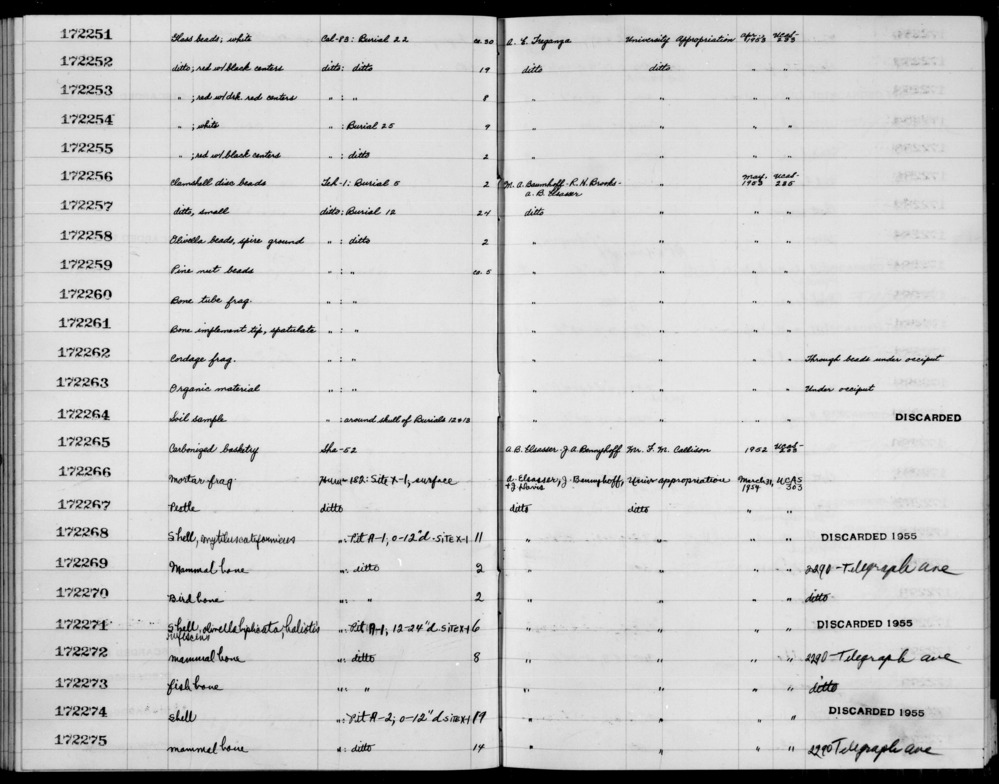 172251 Glass beads; white Cal-83: Burial 22 ca. 30 A. E. Treganza University Appropriation Apr. 1953 UCAS-283
172252 ditto; red w/black centers ditto: ditto 19 ditto ditto " "
172253 " ; red w/drk. red centers " : " 8 " " " "
172254 " ; white " : Burial 25 9 " " " "
172255 " ; red w/black centers " : ditto 2 " " " "
172256 Clamshell disc beads Teh-1: Burial 5 2 M. A. Baumhoff - R. H. Brooks - A. B. Elsasser " May. 1953 UCAS-285
172257 ditto, small ditto: Burial 12 24 ditto " " "
172258 Olivella beads, spire ground " : ditto 2 " " " "
172259 Pine nut beads " : " ca. 5 " " " "
172260 Bone tube frag. " : " " " " "
172261 Bone implement tip, spatulate " : " " " " "
172262 Cordage frag. " : " " " " " Through beads under occiput
172263 Organic material " : " " " " " Under occiput
172264 Soil sample " : around skull of Burials 12+13 " " " " DISCARDED
172265 Carbonized basketry Sha-52 A. B. Elsasser - J. A. Bennyhoff Mr. F. M. Callison 1952 UCAS-
172266 Mortar frag. Hum 182: Site X-1, surface A. Elsasser, J. Bennyhoff, + J. Davis Univ appropriation March 31, 1954 UCAS 303
172267 Pestle ditto ditto ditto " "
172268 Shell, mytilus californicus ": Pit A-1, 0-12"d - SITE X-1 11 " " " " DISCARDED 1955
172269 Mammal bone ": ditto 2 " " " " 2290-Telegraph ave
172270 Bird bone ": " 2 " " " " ditto
172271 Shell, olivella biplicata, haliotis rufescens ": Pit A-1, 12-24"d SITE X-1 6 " " " " DISCARDED 1955
172272 mammal bone ": ditto 8 " " " " 2290-Telegraph ave
172273 fish bone ": " " " " " ditto
172274 shell ": Pit A-2, 0-12"d SITE X-1 19 " " " " DISCARDED 1955
172275 mammal bone ": ditto 14 " " " " 2290 Telegraph ave